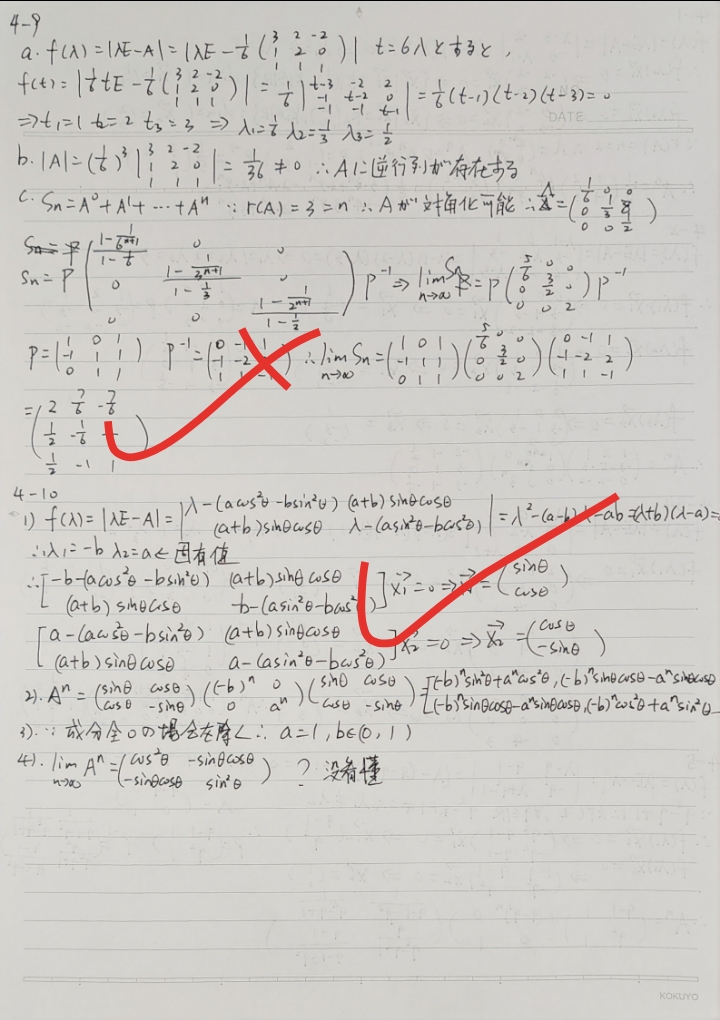 4-9
a. f(λ)=|λE-A|=|λE-1/6 (3 2 -2 / 1 2 0 / 1 1 1)| t=6λとすると,
f(t)=|1/6 tE-1/6 (3 2 -2 / 1 2 0 / 1 1 1)|=1/6 |t-3 -2 2 / -1 t-2 0 / -1 -1 t-1|=1/6(t-1)(t-2)(t-3)=0
⇒t₁=1 t₂=2 t₃=3 ⇒ λ₁=1/6 λ₂=1/3 λ₃=1/2
DATE
b. |A|=(1/6)³ |3 2 -2 / 1 2 0 / 1 1 1|=1/36≠0 ∴Aに逆行列が存在する
c. Sn=A⁰+A¹+…+Aⁿ ∵r(A)=3=n ∴Aが対角化可能 ∴Λ=(1/6 0 0 / 0 1/3 0 / 0 0 1/2)
Sn=P((1-1/6ⁿ⁺¹)/(1-1/6) 0 0 / 0 (1-1/3ⁿ⁺¹)/(1-1/3) 0 / 0 0 (1-1/2ⁿ⁺¹)/(1-1/2))P⁻¹⇒lim n→∞ Sn=P(5/6 0 0 / 0 3/2 0 / 0 0 2)P⁻¹
P=(1 0 1 / -1 1 1 / 0 1 1) P⁻¹=(0 -1 1 / -1 -2 / 1 1 -1) ∴lim n→∞ Sn=(1 0 1 / -1 1 1 / 0 1 1)(5/6 0 0 / 0 3/2 0 / 0 0 2)(0 -1 1 / -1 -2 2 / 1 1 -1)
=(2 7/6 -7/6 / 1/2 -1/6 / 1/2 -1 1)
4-10
1) f(λ)=|λE-A|=|λ-(acos²θ-bsin²θ) (a+b)sinθcosθ / (a+b)sinθcosθ λ-(asin²θ-bcos²θ)|=λ²-(a-b)λ-ab=(λ+b)(λ-a)=
∴λ₁=-b λ₂=a←固有値
∴[-b-(acos²θ-bsin²θ) (a+b)sinθcosθ / (a+b)sinθcosθ -b-(asin²θ-bcos²θ)]x₁=0⇒x₁=(sinθ / cosθ)
[a-(acos²θ-bsin²θ) (a+b)sinθcosθ / (a+b)sinθcosθ a-(asin²θ-bcos²θ)]x₂=0⇒x₂=(cosθ / -sinθ)
2). Aⁿ=(sinθ cosθ / cosθ -sinθ)((-b)ⁿ 0 / 0 aⁿ)(sinθ cosθ / cosθ -sinθ)=[(-b)ⁿsin²θ+aⁿcos²θ, (-b)ⁿsinθcosθ-aⁿsinθcosθ / (-b)ⁿsinθcosθ-aⁿsinθcosθ, (-b)ⁿcos²θ+aⁿsin²θ
3). ∵成分全0の場合を除く∴a=1, b∈(0,1)
4). lim n→∞ Aⁿ=(cos²θ -sinθcosθ / -sinθcosθ sin²θ) ? 没看懂
KOKUYO